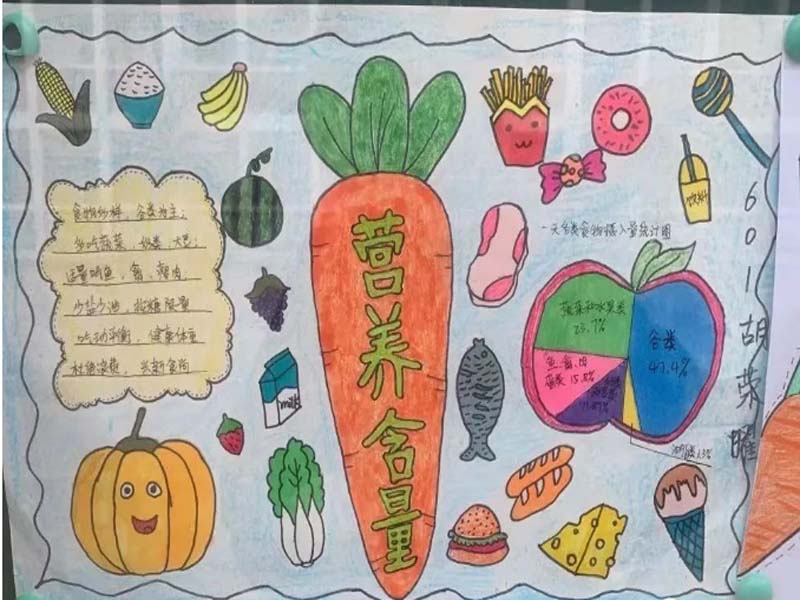 营养含量
食物多样，谷类为主；
多吃蔬菜、奶类、大豆；
适量吃鱼、禽、瘦肉
少盐少油，控糖限量
吃动平衡，健康体重
杜绝浪费，兴新食尚
milk
饮料
一天各类食物摄入量统计图
蔬菜和水果类
谷类
47.4%
鱼、禽、肉
蛋类 15.8%
601 胡荣曜